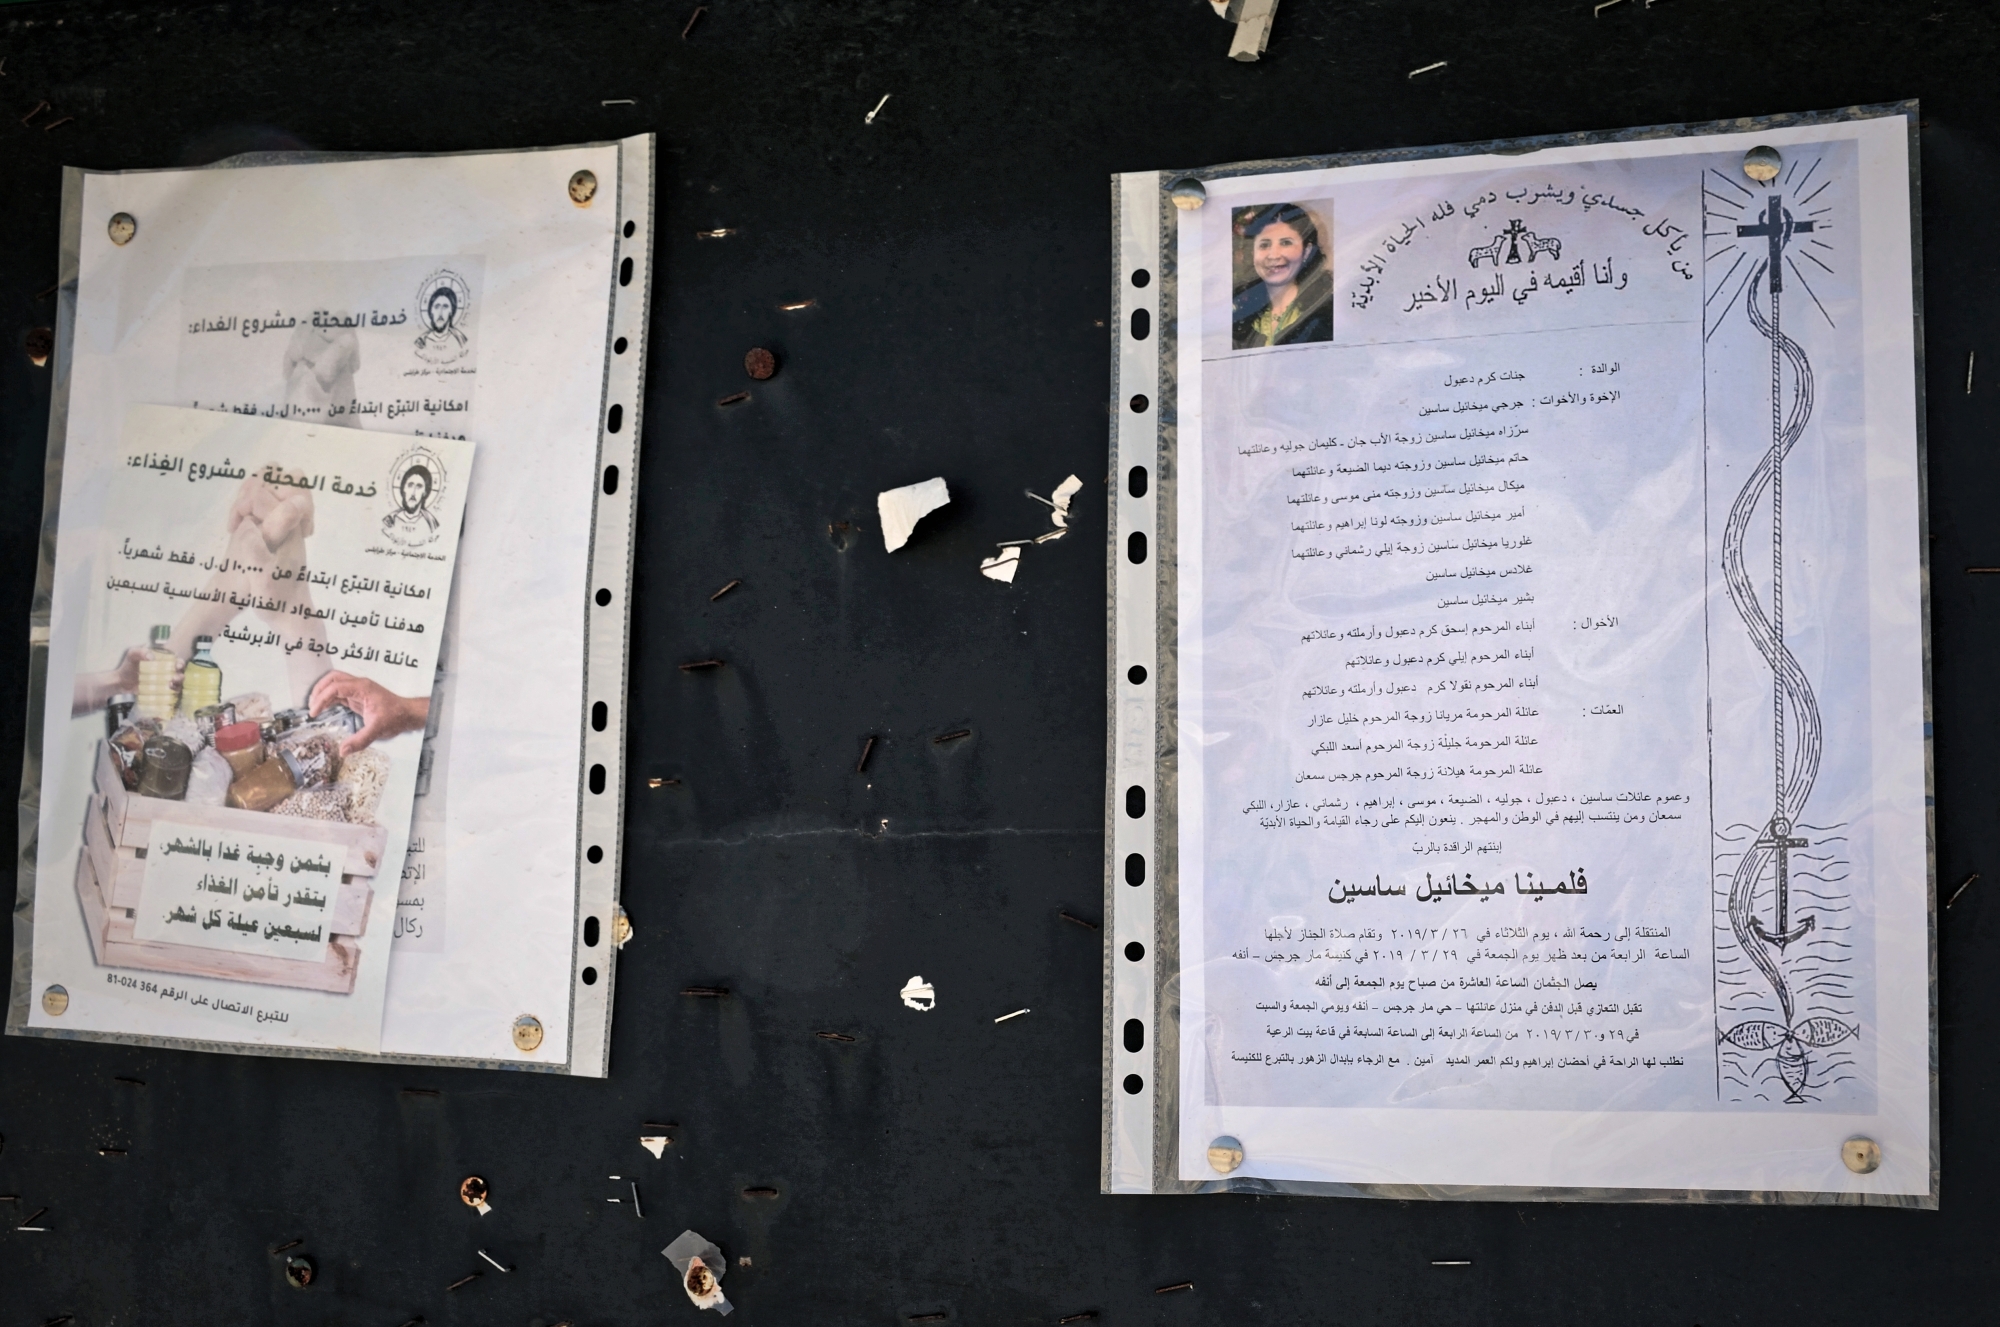 خدمة المحبّة - مشروع الغداء:
امكانية التبرّع ابتداءً من ١٠,٠٠٠ ل.ل. فقط شهرياً
خدمة المحبّة - مشروع الغِذاء:
امكانية التبرّع ابتداءً من ١٠,٠٠٠ ل.ل. فقط شهرياً.
هدفنا تأمين المواد الغذائية الأساسية لسبعين
عائلة الأكثر حاجة في الأبرشية.
بثمن وجبِة غدا بالشهر،
بتقدر تأمن الغِذاء
لسبعين عيلة كل شهر.
للتبرع الاتصال على الرقم 81-024 364
من يأكل جسدي ويشرب دمي فله الحياة الأبديّة
وأنا أقيمه في اليوم الأخير
الوالدة : جنات كرم دعبول
الإخوة والأخوات : جرجي ميخائيل ساسين
سرّزاه ميخائيل ساسين زوجة الأب جان - كليمان جوليه وعائلتهما
حاتم ميخائيل ساسين وزوجته ديما الضيعة وعائلتهما
ميكال ميخائيل ساسين وزوجته منى موسى وعائلتهما
أمير ميخائيل ساسين وزوجته لونا إبراهيم وعائلتهما
غلوريا ميخائيل ساسين زوجة إيلي رشماني وعائلتهما
غلادس ميخائيل ساسين
بشير ميخائيل ساسين
الأخوال : أبناء المرحوم إسحق كرم دعبول وأرملته وعائلاتهم
أبناء المرحوم إيلي كرم دعبول وعائلاتهم
أبناء المرحوم نقولا كرم دعبول وأرملته وعائلاتهم
العمّات : عائلة المرحومة مريانا زوجة المرحوم خليل عازار
عائلة المرحومة جليلة زوجة المرحوم أسعد اللبكي
عائلة المرحومة هيلانة زوجة المرحوم جرجس سمعان
وعموم عائلات ساسين ، دعبول ، جوليه ، الضيعة ، موسى ، إبراهيم ، رشماني ، عازار، اللبكي
سمعان ومن ينتسب إليهم في الوطن والمهجر . ينعون إليكم على رجاء القيامة والحياة الأبديّة
إبنتهم الراقدة بالربّ
فلمـينا ميخائيل ساسين
المنتقلة إلى رحمة الله ، يوم الثلاثاء في ٢٦ / ٣ /٢٠١٩ وتقام صلاة الجناز لأجلها
الساعة الرابعة من بعد ظهر يوم الجمعة في ٢٩ / ٣ / ٢٠١٩ في كنيسة مار جرجس – أنفه
يصل الجثمان الساعة العاشرة من صباح يوم الجمعة إلى أنفه
تقبل التعازي قبل الدفن في منزل عائلتها – حي مار جرجس – أنفه ويومي الجمعة والسبت
في ٢٩ و٣٠ /٣ /٢٠١٩ من الساعة الرابعة إلى الساعة السابعة في قاعة بيت الرعية
نطلب لها الراحة في أحضان إبراهيم ولكم العمر المديد آمين . مع الرجاء بإبدال الزهور بالتبرع للكنيسة